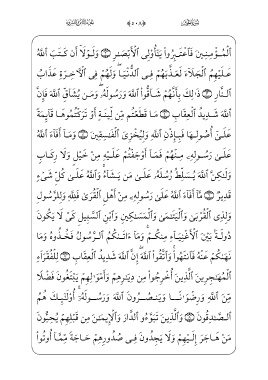 ٱلْمُؤْمِنِينَ فَٱعْتَبِرُوا۟ يَٰٓأُو۟لِى ٱلْأَبْصَٰرِ ۝ وَلَوْلَآ أَن كَتَبَ ٱللَّهُ
عَلَيْهِمُ ٱلْجَلَآءَ لَعَذَّبَهُمْ فِى ٱلدُّنْيَا وَلَهُمْ فِى ٱلْأَخِرَةِ عَذَابُ
ٱلنَّارِ ۝ ذَٰلِكَ بِأَنَّهُمْ شَآقُّوا۟ ٱللَّهَ وَرَسُولَهُۥ وَمَن يُشَآقِّ ٱللَّهَ فَإِنَّ
ٱللَّهَ شَدِيدُ ٱلْعِقَابِ ۝ مَا قَطَعْتُم مِّن لِّينَةٍ أَوْ تَرَكْتُمُوهَا قَآئِمَةً
عَلَىٰٓ أُصُولِهَا فَبِإِذْنِ ٱللَّهِ وَلِيُخْزِىَ ٱلْفَٰسِقِينَ ۝ وَمَآ أَفَآءَ ٱللَّهُ
عَلَىٰ رَسُولِهِۦ مِنْهُمْ فَمَآ أَوْجَفْتُمْ عَلَيْهِ مِنْ خَيْلٍ وَلَا رِكَابٍ
وَلَٰكِنَّ ٱللَّهَ يُسَلِّطُ رُسُلَهُۥ عَلَىٰ مَن يَشَآءُ وَٱللَّهُ عَلَىٰ كُلِّ شَىْءٍ
قَدِيرٌ ۝ مَّآ أَفَآءَ ٱللَّهُ عَلَىٰ رَسُولِهِۦ مِنْ أَهْلِ ٱلْقُرَىٰ فَلِلَّهِ وَلِلرَّسُولِ
وَلِذِى ٱلْقُرْبَىٰ وَٱلْيَتَٰمَىٰ وَٱلْمَسَٰكِينِ وَٱبْنِ ٱلسَّبِيلِ كَىْ لَا يَكُونَ
دُولَةًۢ بَيْنَ ٱلْأَغْنِيَآءِ مِنكُمْ وَمَآ ءَاتَىٰكُمُ ٱلرَّسُولُ فَخُذُوهُ وَمَا
نَهَىٰكُمْ عَنْهُ فَٱنتَهُوا۟ وَٱتَّقُوا۟ ٱللَّهَ إِنَّ ٱللَّهَ شَدِيدُ ٱلْعِقَابِ ۝ لِلْفُقَرَآءِ
ٱلْمُهَٰجِرِينَ ٱلَّذِينَ أُخْرِجُوا۟ مِن دِيَٰرِهِمْ وَأَمْوَٰلِهِمْ يَبْتَغُونَ فَضْلًا
مِّنَ ٱللَّهِ وَرِضْوَٰنًا وَيَنصُرُونَ ٱللَّهَ وَرَسُولَهُۥٓ أُو۟لَٰٓئِكَ هُمُ
ٱلصَّٰدِقُونَ ۝ وَٱلَّذِينَ تَبَوَّءُو ٱلدَّارَ وَٱلْإِيمَٰنَ مِن قَبْلِهِمْ يُحِبُّونَ
مَنْ هَاجَرَ إِلَيْهِمْ وَلَا يَجِدُونَ فِى صُدُورِهِمْ حَاجَةً مِّمَّآ أُوتُوا۟